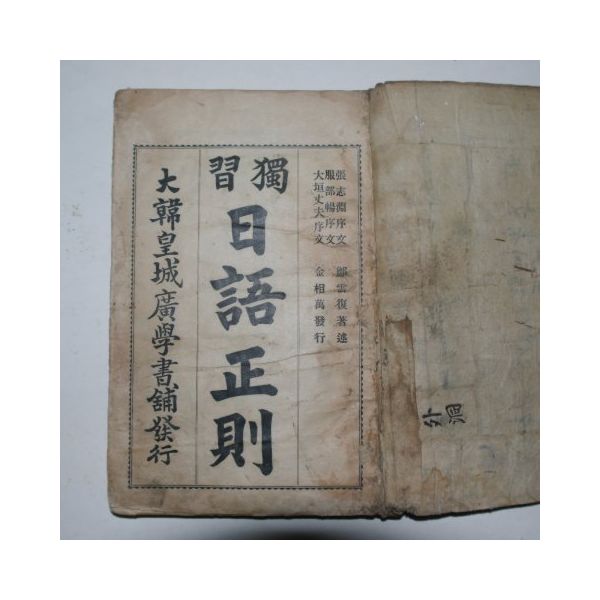 張志淵序文
服部暢序文
大垣丈夫序文
鄭雲復著述
金相萬發行
獨習
日語正則
大韓皇城廣學書舖發行